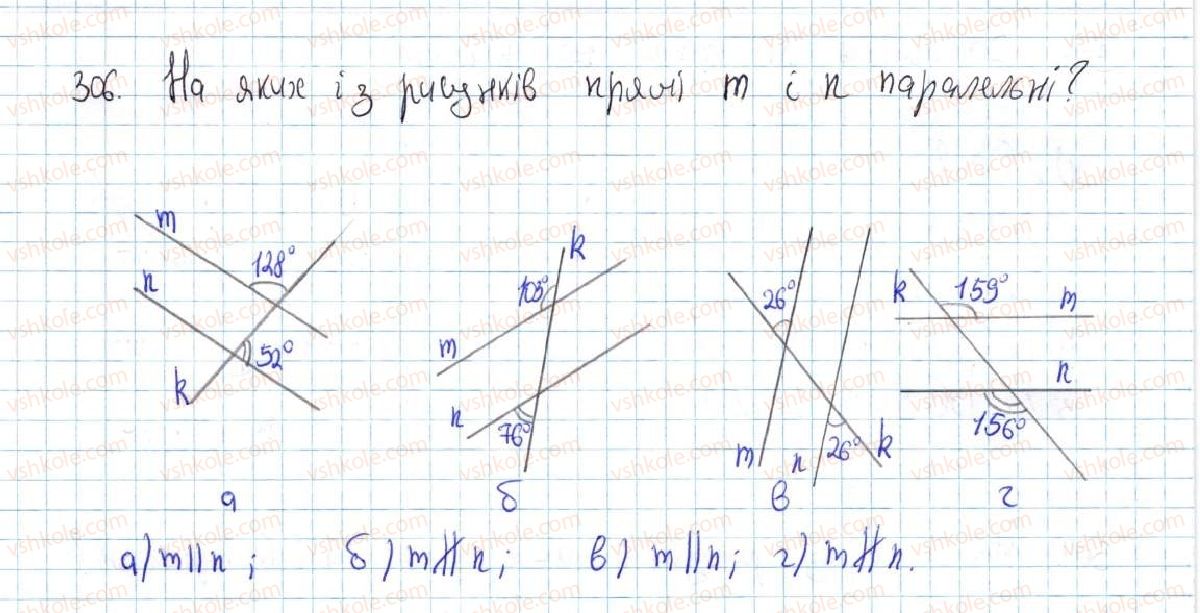 306. На яких із рисунків прямі m і n паралельні?
m 128° n 52° k
k 105° m n 76°
26° m n 26° k
k 159° m n 156°
а б в г
а) m∥n; б) m∦n; в) m∥n; г) m∦n.
vshkole.com